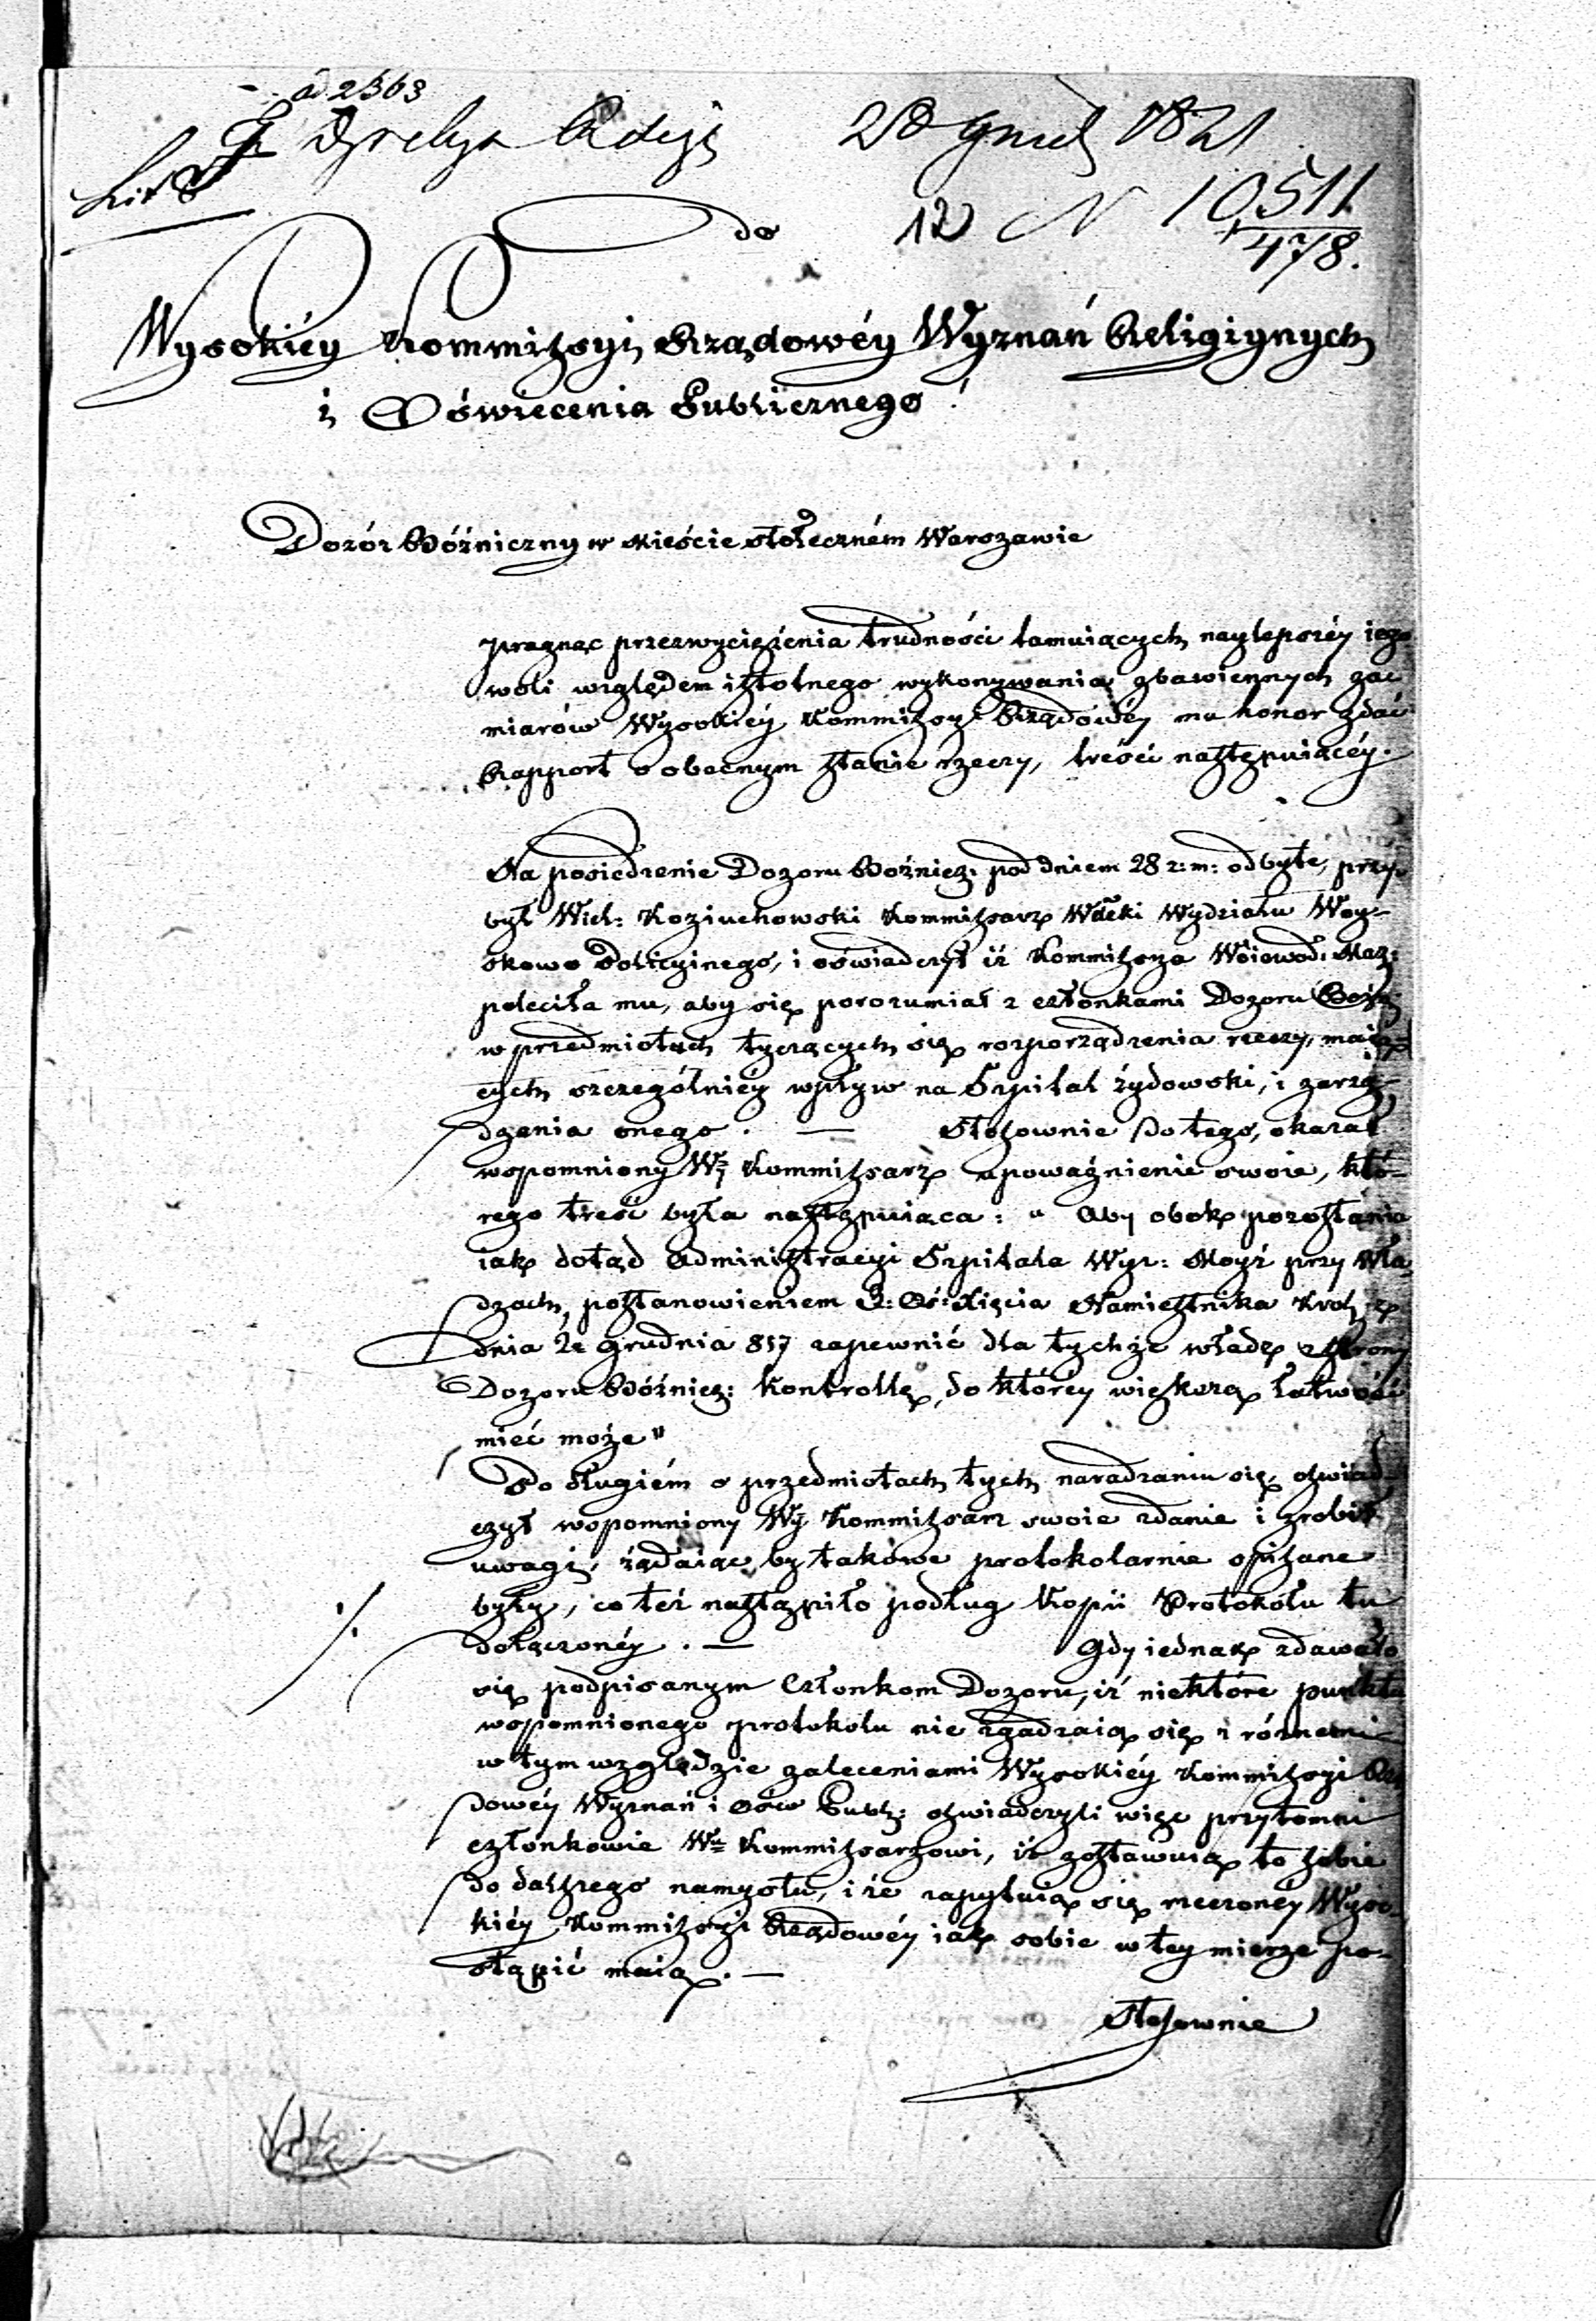 ad 2363
28 grud 1821
Lit
do
12 N 10511
478.
Wysokiéy Kommissyi Rządowéy Wyznań Religiynych
i Oświecenia Publicznego!
Dozór Bóżniczny w Mieście stołeczném Warszawie
pragnąc przezwyciężenia trudności tamuiących naylepszéy iego
woli względem istotnego wykonywania zbawiennych za-
miarów Wysokiéy Kommissyi Rządowéy ma honor zdać
Rapport o obecnym stanie rzeczy, treści następuiącéy.
Na posiedzenie Dozoru Bożnicz: pod dniem 28 z: m: odbyte, przy-
był Wiel: Koziuchowski Kommissarz Wdzki Wydziału Woy-
skowo Policyinego, i oświadczył iż Kommissya Woiewód: Maz:
poleciła mu, aby się porozumiał z członkami Dozoru Boż:
w przedmiotach tyczących się rozporządzenia rzeczy, maią-
cych szczególniéy wpływ na Szpital żydowski, i zarzą-
dzenia onego. — Stosownie do tego, okazał
wspomniony Wy Kommissarz upoważnienie swoie, któ-
rego treść była następuiąca: "Aby obok pozostania
iak dotąd Administracyi Szpitala Wyz: Moyż przy Wła-
dzach, postanowieniem J: Oś: Xięcia Namiestnika Król: z
dnia 2 grudnia 817 zapewnić dla tychże władz z strony
Dozoru Bóżnicz: Kontrollę, do któréy większą łatwość
mieć może"
Po długiém o przedmiotach tych naradzaniu się, oświad-
czył wspomniony Wy Kommissarz swoie zdanie i zrobił
uwagi, żądaiąc by takowe protokolarnie opisane
były, co też nastąpiło podług Kopii Protokołu tu
dołączonéy. — Gdy iednak zdawało
się podpisanym Członkom Dozoru, iż niektóre punkta
wspomnionego protokołu nie zgadzaią się z różnemi
w tym względzie zaleceniami Wysokiéy Kommissyi Rzą-
dowéy Wyznań i Ośw Publ: oświadczyli więc przytomni
członkowie Wu Kommissarzowi, iż zostawuią to sobie
do dalszego namysłu, i że zapytuią się rzeczonéy Wyso-
kiéy Kommissyi Rządowéy iak sobie w tey mierze po-
stąpić maią. —
Stosownie